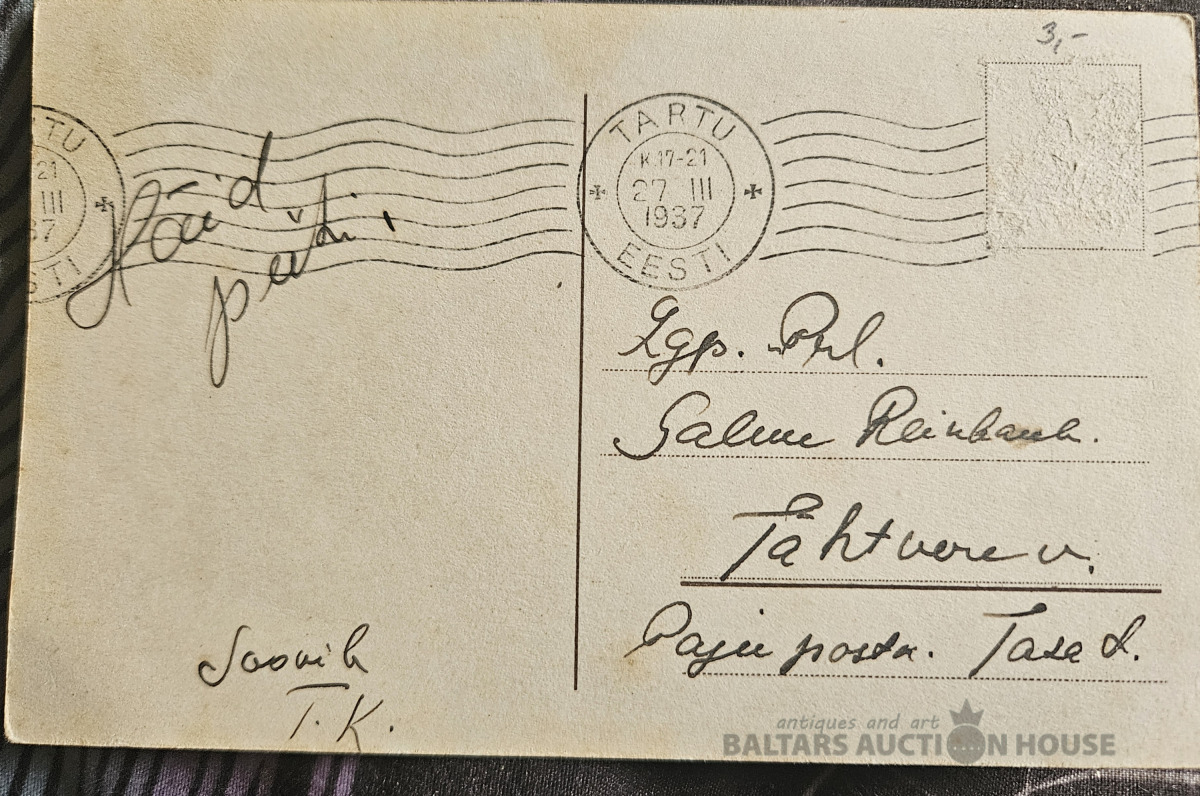 3,-
TU
21
III
37
STI
Häid
pühi.
TARTU
K.17-21
27 III
1937
EESTI
Lgp. Prl.
Salme
Tähtvere v.
Paju postk. Tasa t.
Soovib
T. K.
antiques and art
BALTARS AUCTION HOUSE